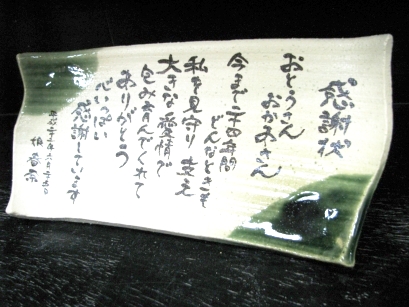 感謝状
おとうさん
おかあさん
今まで二十四年間
どんなときも
私を見守り支え
大きな愛情で
包み育んでくれて
ありがとう
心いっぱい
感謝しています